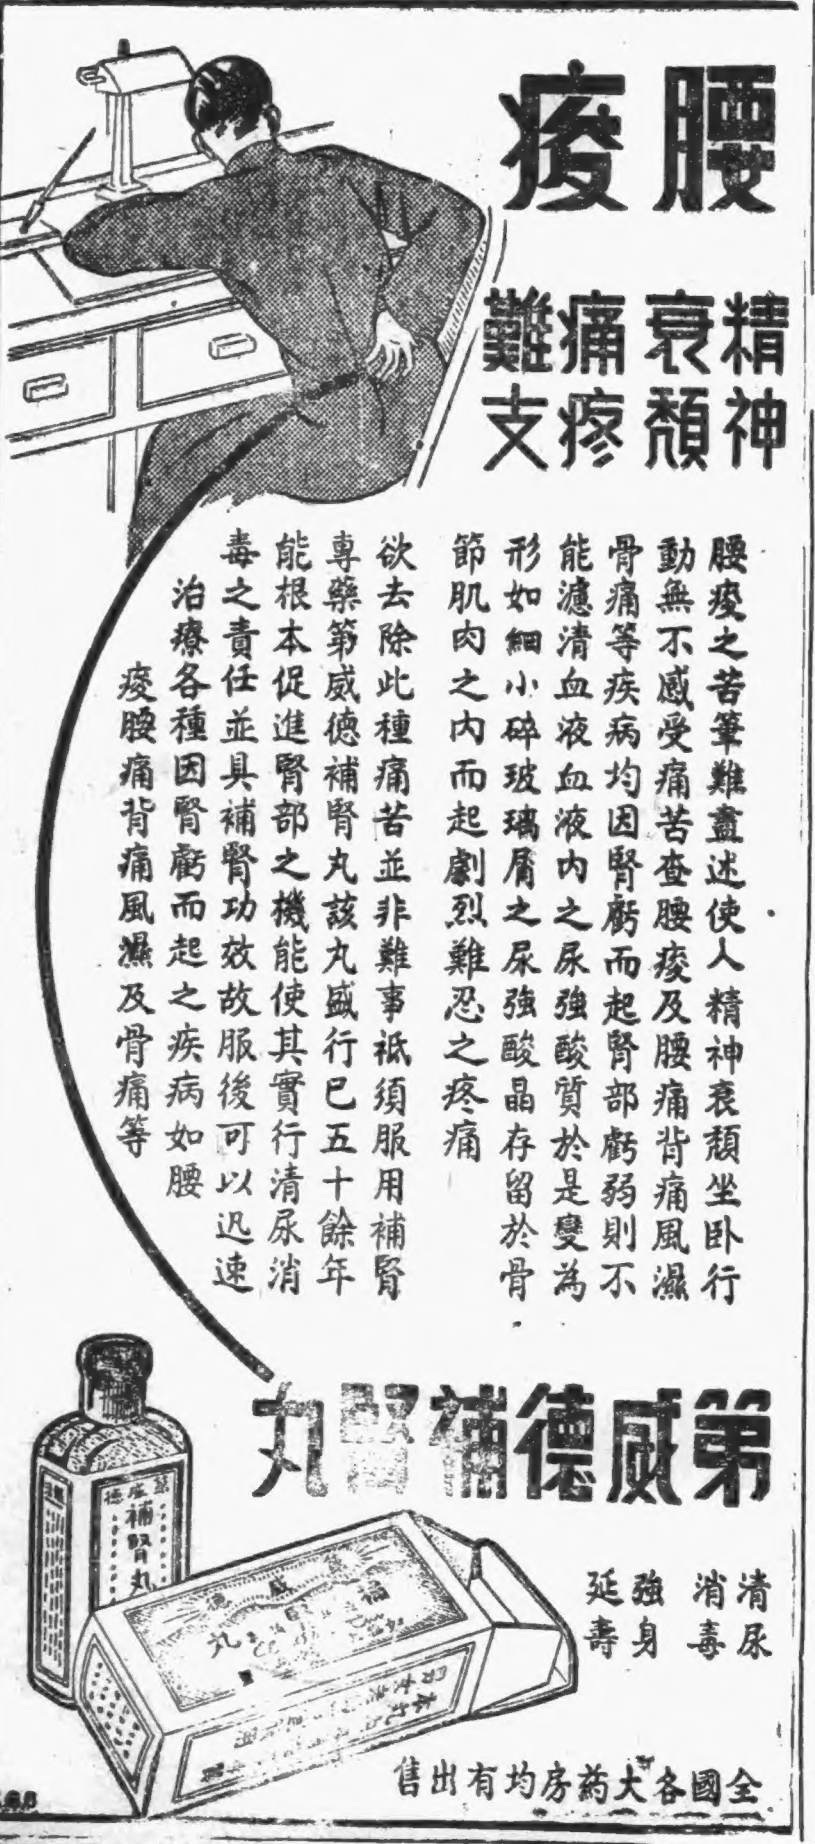 腰痠
精神
衰頹
痛疼
難支
腰痠之苦筆難盡述使人精神衰頹坐卧行
動無不感受痛苦查腰痠及腰痛背痛風濕
骨痛等疾病均因腎虧而起腎部虧弱則不
能濾清血液血液內之尿強酸質於是變為
形如細小碎玻璃屑之尿強酸晶存留於骨
節肌肉之內而起劇烈難忍之疼痛
欲去除此種痛苦並非難事祇須服用補腎
專藥第威德補腎丸該丸盛行已五十餘年
能根本促進腎部之機能使其實行清尿消
毒之責任並具補腎功效故服後可以迅速
治療各種因腎虧而起之疾病如腰
痠腰痛背痛風濕及骨痛等
第威德補腎丸
清尿
消毒
強身
延壽
第威德
補腎丸
全國各大药房均有出售